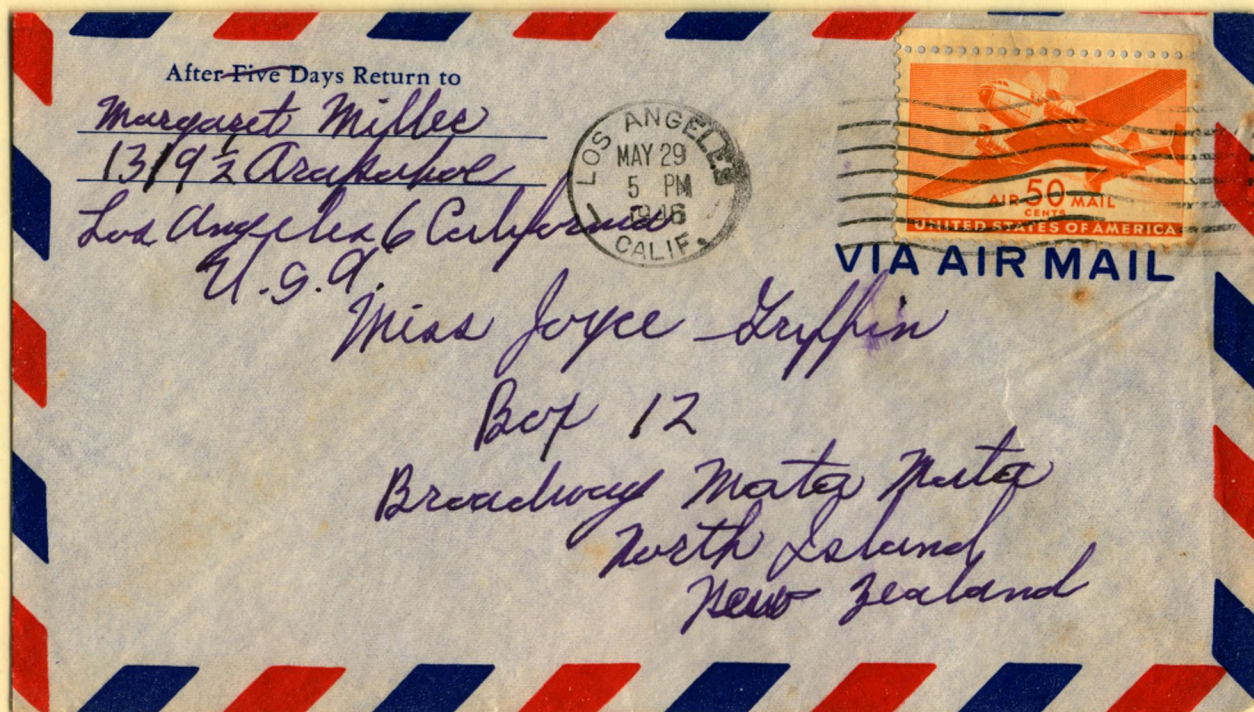 After Five Days Return to
Margaret Miller
1319 ½ Arapahoe
Los Angeles 6 California
U.S.A.
LOS ANGELES
MAY 29
5 PM
1946
CALIF.
AIR 50 MAIL
CENTS
UNITED STATES OF AMERICA
VIA AIR MAIL
Miss Joyce Griffin
Box 12
Broadway Mata Mata
North Island
New Zealand